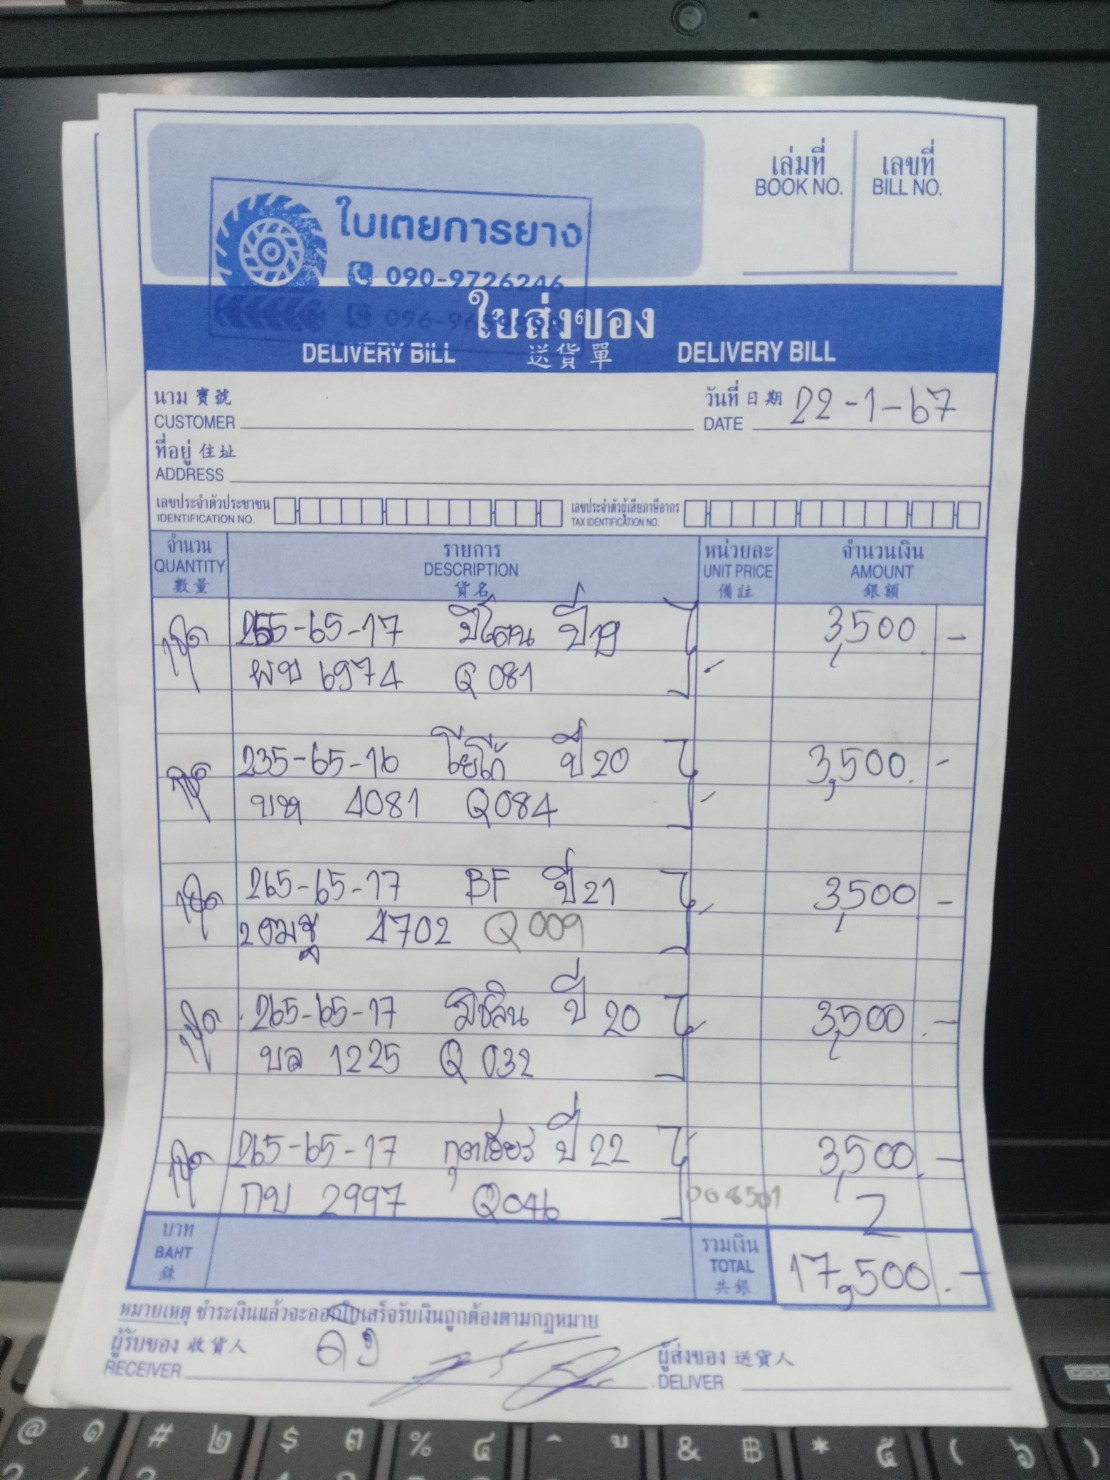 เล่มที่ เลขที่
BOOK NO. BILL NO.
ใบเตยการยาง
090-9726246
ใบส่งของ
DELIVERY BILL 送貨單 DELIVERY BILL
นาม 寶號 วันที่ 日期 22-1-67
CUSTOMER DATE
ที่อยู่ 住址
ADDRESS
เลขประจำตัวประชาชน เลขประจำตัวผู้เสียภาษีอากร
IDENTIFICATION NO. TAX IDENTIFICATION NO.
จำนวน รายการ หน่วยละ จำนวนเงิน
QUANTITY DESCRIPTION UNIT PRICE AMOUNT
數量 貨名 備註 銀額
265-65-17 ปี 19 3,500 -
ผข 6974 Q081
235-65-16 โยโก้ ปี 20 3,500. -
บห 4081 Q084
265-65-17 BF ปี 21 3,500 -
4702 Q009
265-65-17 มิชลิน ปี 20 3,500 .-
บล 1225 Q 032
265-65-17 กูดเยียร์ ปี 22 3,500 .-
กบ 2997 Q046
บาท รวมเงิน
BAHT TOTAL 17,500.-
銖 共銀
หมายเหตุ ชำระเงินแล้วจะออกใบเสร็จรับเงินถูกต้องตามกฎหมาย
ผู้รับของ 收貨人 ผู้ส่งของ 送貨人
RECEIVER DELIVER